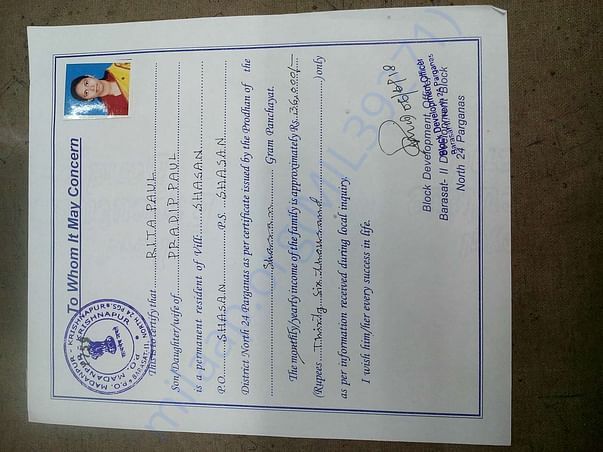 To Whom It May Concern
This is to certify that RITA PAUL
Son/Daughter/wife of PRADIP PAUL
is a permanent resident of Vill. SHASAN
P.O. SHASAN P.S. SHASAN
District North 24 Parganas as per certificate issued by the Prodhan of the
Shasan Gram Panchayat.
The monthly/yearly income of the family is approximately Rs. 26,000/-
(Rupees Twenty six thousand )only
as per information received during local inquiry.
I wish him/her every success in life.
Block Development Officer
Barasat- II Development Block
North 24 Parganas
Block Development Officer
P.O. MADANPUR - KRISHNAPUR
milaap.org